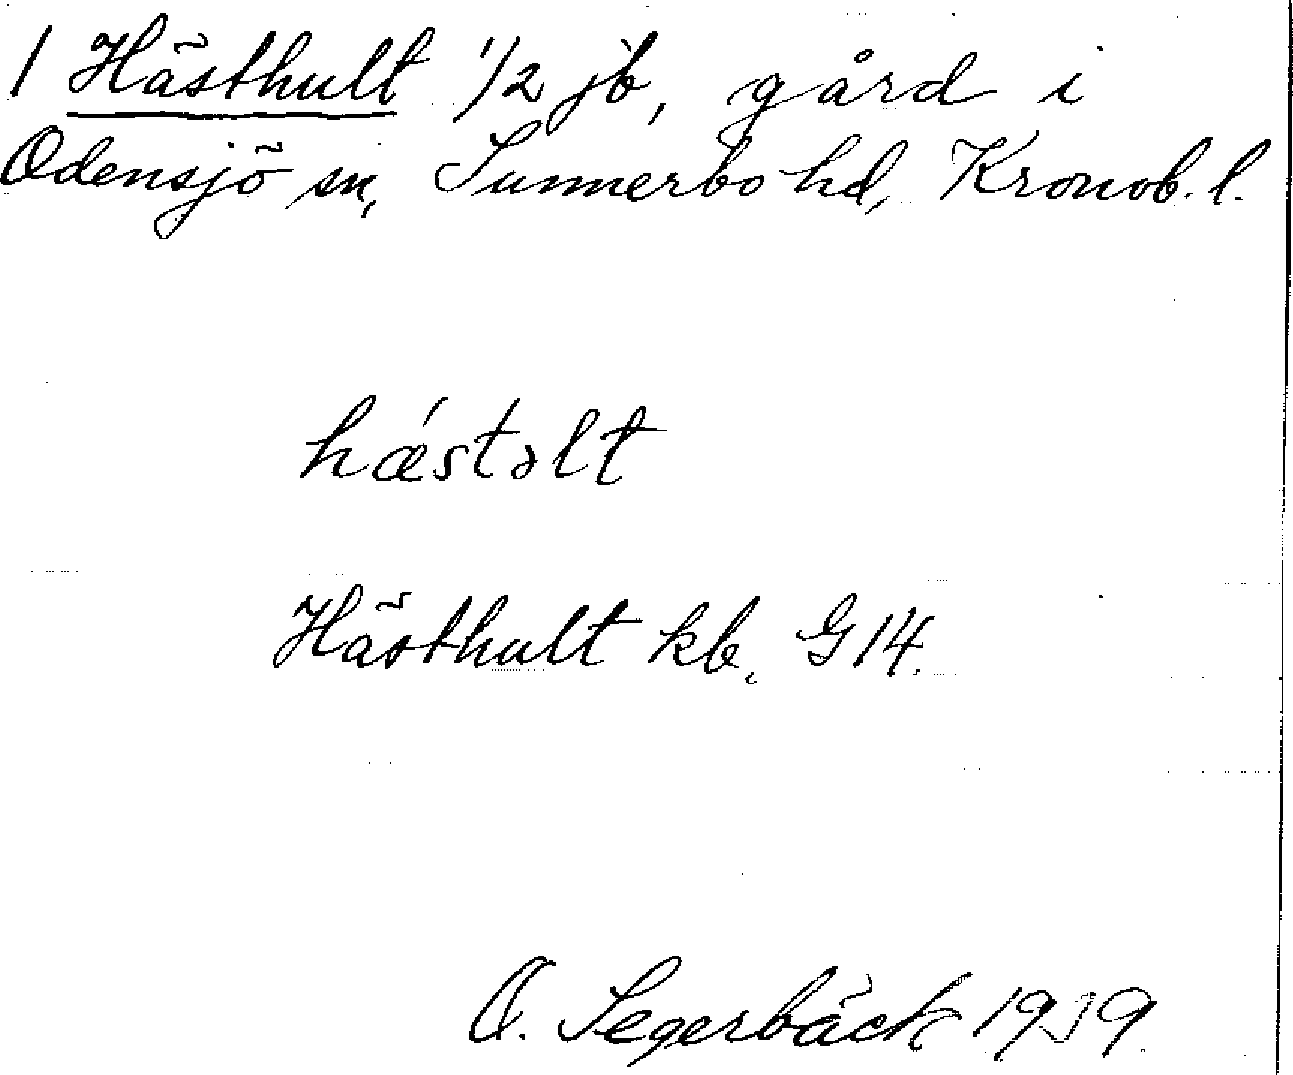 1 Hästhult 1/2 jb, gård i
Odensjö sn, Sunnerbo hd, Kronob. l.
hǽstəlt
Hästhult kb. G14.
O. Segerbäck 1939.